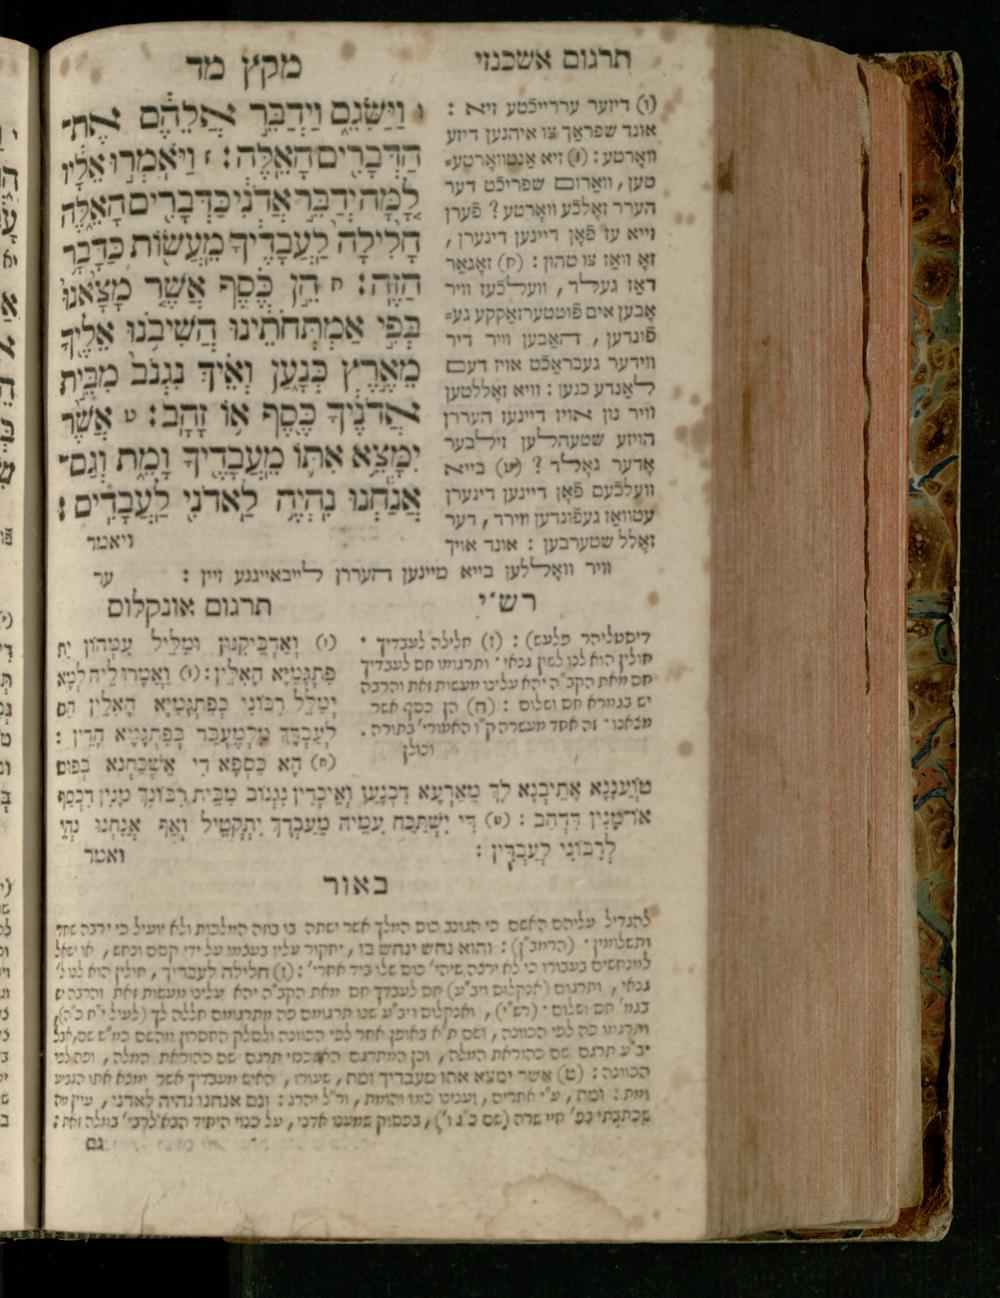 מקץ מד
ו וַיַּשִּׂגֵם וַיְדַבֵּר אֲלֵהֶם אֶת־
הַדְּבָרִים הָאֵלֶּה׃ ז וַיֹּאמְרוּ אֵלָיו
לָמָּה יְדַבֵּר אֲדֹנִי כַּדְּבָרִים הָאֵלֶּה
חָלִילָה לַעֲבָדֶיךָ מֵעֲשׂוֹת כַּדָּבָר
הַזֶּה׃ ח הֵן כֶּסֶף אֲשֶׁר מָצָאנוּ
בְּפִי אַמְתְּחֹתֵינוּ הֱשִׁיבֹנוּ אֵלֶיךָ
מֵאֶרֶץ כְּנָעַן וְאֵיךְ נִגְנֹב מִבֵּית
אֲדֹנֶיךָ כֶּסֶף אוֹ זָהָב׃ ט אֲשֶׁר
יִמָּצֵא אִתּוֹ מֵעֲבָדֶיךָ וָמֵת וְגַם־
אֲנַחְנוּ נִהְיֶה לַאדֹנִי לַעֲבָדִים׃
ויאמר
תרגום אשכנזי
(ו) דיזער עררייכֿטע זיא :
אונד שפראַך צו איהנען דיזע
וואָרטע : (ז) זיא אַנטוואָרטע=
טען, וואַרום שפריכֿט דער
הערר זאָלכֿע וואָרטע? פֿערן
זייא עז פֿאָן דיינען דינערן,
זאָ וואַז צו טהון : (ח) זאָגאַר
דאַז געלד, וועלכֿעז וויר
אָבען אים פֿוטטערזאַקקע גע=
פֿונדען, האַבען וויר דיר
ווידער געבראַכֿט אויז דעם
לאַנדע כנען : וויא זאָללטען
וויר נון אויז דיינעז העררן
הויזע שטעהלען זילבער
אָדער גאָלד? (ט) בייא
וועלכֿעם פֿאָן דיינען דינערן
עטוואַז געפֿונדען ווירד, דער
זאָלל שטערבען : אונד אויך
וויר וואָללען בייא מיינען העררן לייבאייגנע זיין : ער
רש״י
דיסטליהר פלעט) : (ז) חלילה לעבדיך ·
חולין הוא לנו לשון גנאי · ותרגומו חס לעבדיך
חס מאת הקב״ה יהא עלינו מעשות זאת והרבה
יש בגמרא חס ושלום : (ח) הן כסף אשר
מצאנו · זה אחד מעשרה ק״ו האמורי׳ בתורה.
וכולן
תרגום אונקלוס
(ו) וְאַדְבֵּיקִנּוּן וּמַלֵּיל עִמְּהוֹן יַת
פִּתְגָמַיָּא הָאִלֵּין : (ז) וַאֲמָרוּ לֵיהּ לְמָא
יְמַלֵּל רִבּוֹנִי כְּפִתְגָמַיָּא הָאִלֵּין חַס
לְעַבְדָּךְ מִלְּמֶעְבַּד כְּפִתְגָּמָא הָדֵין :
(ח) הָא כַסְפָּא דִי אַשְׁכַּחְנָא בְּפוּם
טוֹעֲנָנָא אֲתֵיבְנָא לָךְ מֵאַרְעָא דִכְנָעַן וְאֵיכְדֵין נִגְנוֹב מִבֵּית רִבּוֹנָךְ מָנִין דִּכְסַף
אוֹ מָנִין דִּדְהַב : (ט) דִּי יִשְׁתְּכַח עִמֵּיהּ מֵעַבְדָּךְ יִתְקְטֵיל וְאַף אֲנַחְנוּ נְהֵי
לְרִבּוֹנִי לְעַבְדִין :
ואמר
באור
להגדיל עליהם האשם כי הגונב כוס המלך אשר ישתה בו בוזה המלכות ולא יועיל כי ירבה שחד
ותשלומין · (הרמב״ן) : והוא נחש ינחש בו, יחקור עליו בעצמו על ידי קסם ונחש, או ישאל
למנחשים בעבורו כי לא ירצה שיהי׳ כוס שלו ביד אחרי׳ : (ז) חלילה לעבדיך, חולין הוא לנו ל׳
גנאי, ותרגום (אנקלוס ויב״ע) חס לעבדך חס מאת הקב״ה יהא עלינו מעשות זאת והרבה יש
בגמ׳ חס ושלום · (רש״י), ואנקלוס ויב״ע שנו תרגומם פה מתרגומם חללה לך (לעיל י״ח כ״ה),
ותרגמו פה לפי הכוונה, ושם ת״א באופן אחר לפי הכוונה ולסלק החסרון מהשם כמ״ש שם, אבל
יב״ע תרגם שם כהוראת המלה, וכן המתרגם האשכנזי תרגם שם כהוראת המלה, ופה לפי
הכוונה : (ט) אשר ימצא אתו מעבדיך ומת, שעורו, האיש מעבדיך אשר ימצא אתו הגביע
ומת : ומת, ע״י אחרים, וענינו כמו והומת, ור״ל יהרג : וגם אנחנו נהיה לאדני, עיין מה
שכתבתי בפ׳ חיי שרה (שם כ״ג ו׳), בפסוק שמענו אדני, על כנוי היחיד הבא לרבי׳ במלה זאת :
גם